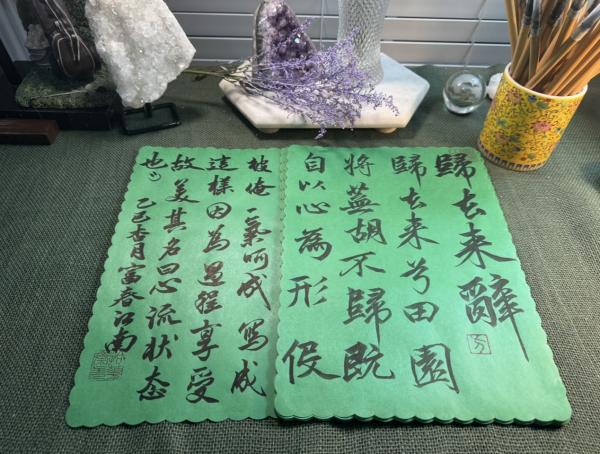 歸去来辭
歸去来兮田園
將蕪胡不歸既
自以心為形役
被俺一氣呵成寫成
這樣因為過程享受
故美其名曰心流状态
也
乙巳杏月富春江南